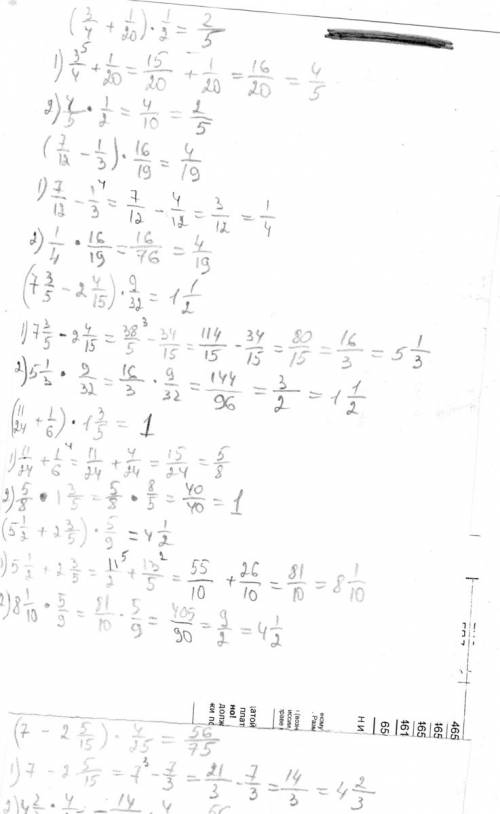 (3/4 + 1/20) · 1/2 = 2/5
1) 3/4 ⁵ + 1/20 = 15/20 + 1/20 = 16/20 = 4/5
2) 4/5 · 1/2 = 4/10 = 2/5
(7/12 - 1/3) · 16/19 = 4/19
1) 7/12 - 1/3 ⁴ = 7/12 - 4/12 = 3/12 = 1/4
2) 1/4 · 16/19 = 16/76 = 4/19
(7 3/5 - 2 4/15) · 9/32 = 1 1/2
1) 7 3/5 - 2 4/15 = 38/5 ³ - 34/15 = 114/15 - 34/15 = 80/15 = 16/3 = 5 1/3
2) 5 1/3 · 9/32 = 16/3 · 9/32 = 144/96 = 3/2 = 1 1/2
(11/24 + 1/6) · 1 3/5 = 1
1) 11/24 + 1/6 ⁴ = 11/24 + 4/24 = 15/24 = 5/8
2) 5/8 · 1 3/5 = 5/8 · 8/5 = 40/40 = 1
(5 1/2 + 2 3/5) · 5/9 = 4 1/2
1) 5 1/2 + 2 3/5 = 11/2 ⁵ + 13/5 ² = 55/10 + 26/10 = 81/10 = 8 1/10
2) 8 1/10 · 5/9 = 81/10 · 5/9 = 405/90 = 9/2 = 4 1/2
(7 - 2 5/15) · 4/25 = 56/75
1) 7 - 2 5/15 = 7 ³ - 7/3 = 21/3 - 7/3 = 14/3 = 4 2/3
465
165
165
161
65
Н И
но!